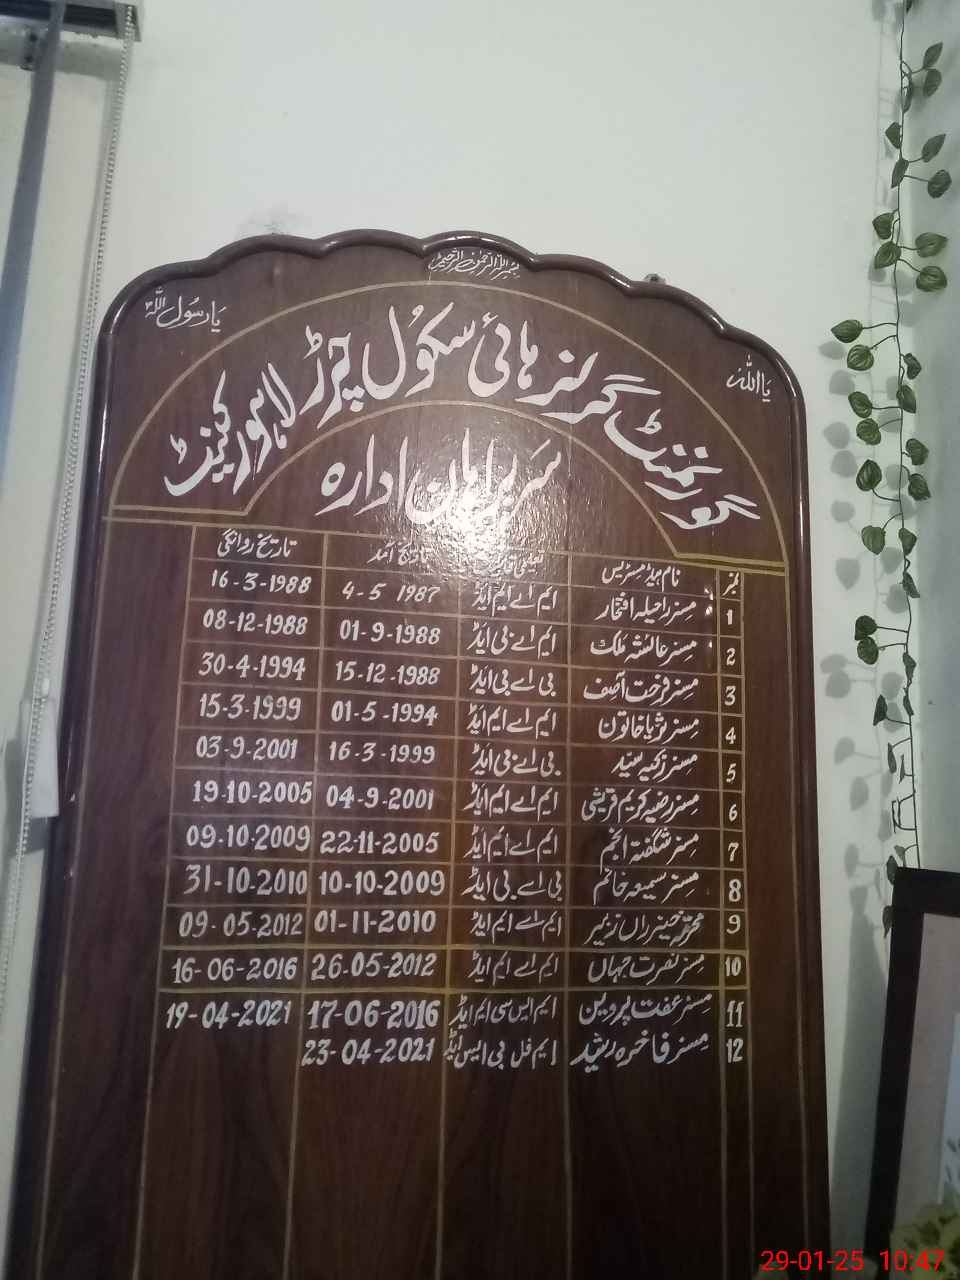 بسم اللہ الرحمن الرحیم
یا اللہ
یا رسول اللہ
گورنمنٹ گرلز ہائی سکول چرڑ لاہور کینٹ
سربراہان ادارہ
نمبر نام ہیڈ مسٹریس تعلیمی تاریخ آمد تاریخ روانگی
1 مسز راحیلہ افتخار ایم اے ایم ایڈ 4-5 1987 16-3-1988
2 مسز عائشہ ملک ایم اے بی ایڈ 01-9-1988 08-12-1988
3 مسز فرحت آصف بی اے بی ایڈ 15-12-1988 30-4-1994
4 مسز ثریا خاتون ایم اے ایم ایڈ 01-5-1994 15-3-1999
5 مسز زکیہ سید بی اے بی ایڈ 16-3-1999 03-9-2001
6 مسز رضیہ کریم قریشی ایم اے ایم ایڈ 04-9-2001 19-10-2005
7 مسز شگفتہ انجم ایم اے ایم ایڈ 22-11-2005 09-10-2009
8 مسز سمیعہ خانم بی اے بی ایڈ 10-10-2009 31-10-2010
9 ایم اے ایم ایڈ 01-11-2010 09-05-2012
10 مسز نصرت جہاں ایم اے ایم ایڈ 26-05-2012 16-06-2016
11 مسز عفت پروین ایم ایس سی ایم ایڈ 17-06-2016 19-04-2021
12 مسز فاخرہ رشید ایم فل بی ایس ایڈ 23-04-2021
29-01-25 10:47